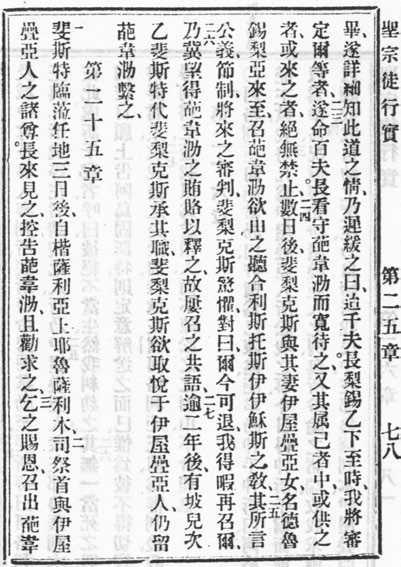 聖宗徒行實 第二五章 七八
畢、遂詳細知此道之情、乃遲緩之曰、迨千夫長梨錫乙下至時、我將審
定爾等者、二三遂命百夫長看守葩韋泐而寬待之、又其属己者中、或供之
者、或來之者、絕無禁止、二四數日後、斐梨克斯與其妻伊屋疊亞女名德魯
錫梨亞來至、召葩韋泐欲由之聽合利斯托斯伊伊穌斯之敎、二五其所言
公義節制將來之審判、斐梨克斯驚懼對曰、爾今可退、我得暇再召爾、
二六乃冀望得葩韋泐之賄賂以釋之、故屢召之共語、二七逾二年後有坡兒次
乙斐斯特代斐梨克斯承其職、斐梨克斯欲取悅于伊屋疊亞人、仍留
葩韋泐繫之、
第二十五章
一斐斯特臨蒞任地三日後、自楷薩利亞上耶魯薩利木、二司祭首與伊屋
疊亞人之諸尊長來見之、控告葩韋泐、且勸求之、三乞之賜恩、召出葩韋